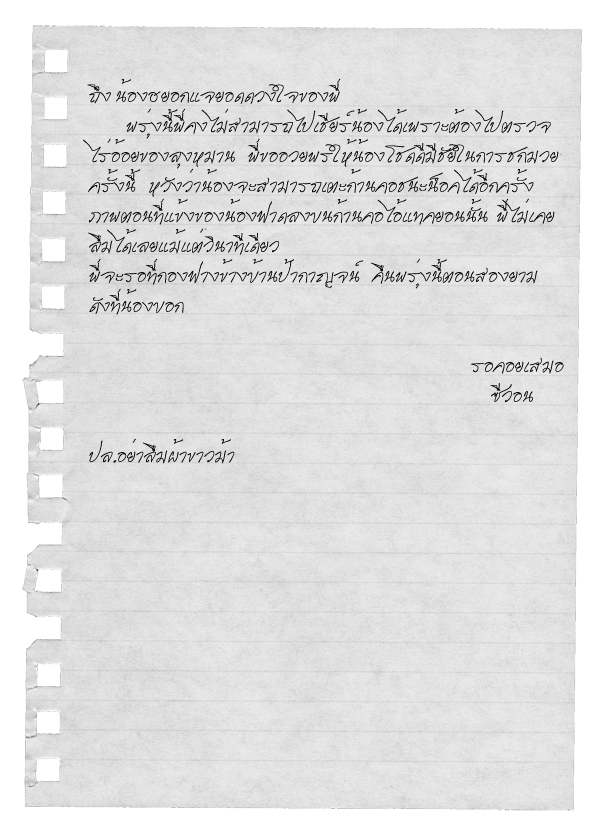 ถึง น้องชยอกแจยอดดวงใจของพี่
พรุ่งนี้พี่คงไม่สามารถไปเชียร์น้องได้เพราะต้องไปตรวจ
ไร่อ้อยของลุงหมาน พี่ขออวยพรให้น้องโชคดีมีชัยในการชกมวย
ครั้งนี้ หวังว่าน้องจะสามารถเตะก้านคอชนะน็อคได้อีกครั้ง
ภาพตอนที่แข้งของน้องฟาดลงบนก้านคอไอ้แทคยอนนั้น พี่ไม่เคย
ลืมได้เลยแม้แต่วินาทีเดียว
พี่จะรอที่กองฟางข้างบ้านป้ากาญจน์ คืนพรุ่งนี้ตอนสองยาม
ดังที่น้องบอก
รอคอยเสมอ
ชีวอน
ปล.อย่าลืมผ้าขาวม้า